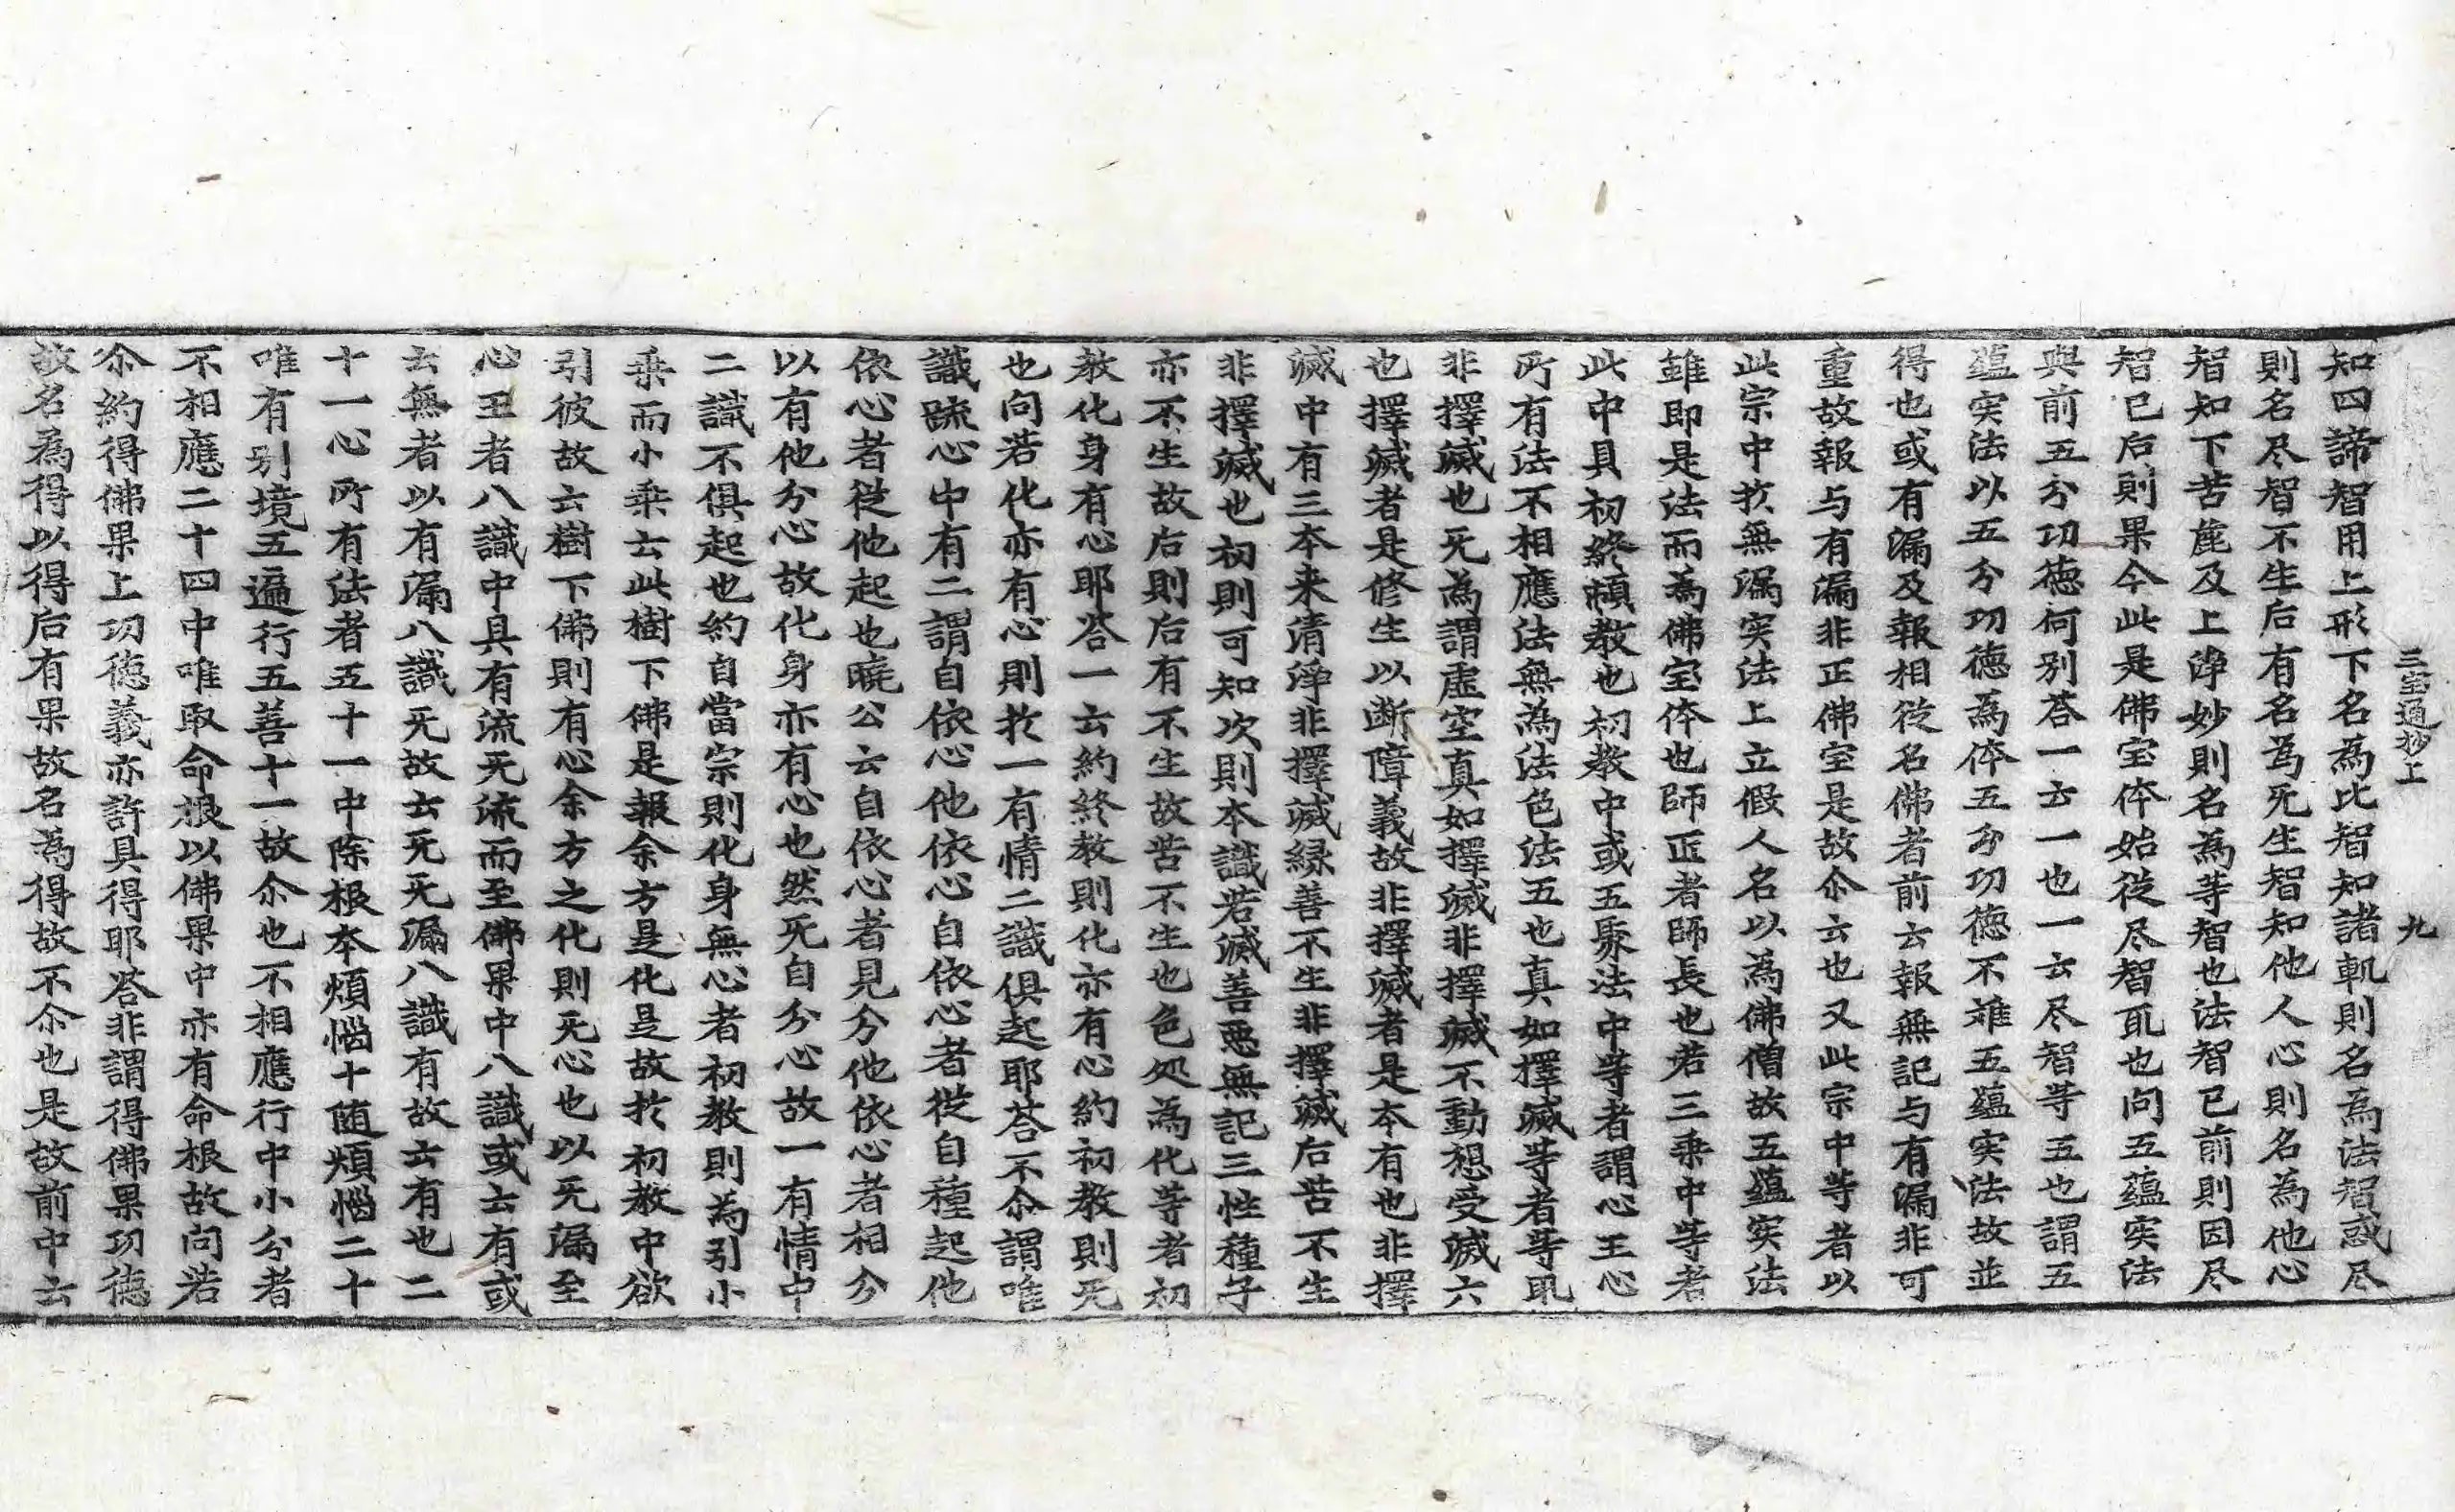 三宝通抄上　九
知四諦智用上形下名為比智知諸軌則名為法智惑尽
則名尽智不生后有名為无生智知他人心則名為他心
智知下苦麁及上淨妙則名為等智也法智已前則因尽
智已后則果今此是佛宝体始從尽智瓦也问五蕴实法
與前五分功徳何别荅一云一也一云尽智等五也謂五
蕴实法以五分功徳為体五分功徳不难五蕴实法故並
得也或有漏及報相從名佛者前云報無記与有漏非可
重故報与有漏非正佛宝是故尒云也又此宗中等者以
此宗中扵無漏实法上立假人名以為佛僧故五蕴实法
雖即是法而為佛宝体也師匠者師長也若三乗中等者
此中具初終頓教也初教中或五聚法中等者謂心王心
所有法不相應法無為法色法五也真如擇滅等者等取
非擇滅也无為謂虛空真如擇滅非擇滅不動想受滅六
也擇滅者是修生以断障義故非擇滅者是本有也非擇
滅中有三本来清淨非擇滅緣善不生非擇滅后苦不生
非擇滅也初則可知次則本識若滅善惡無記三性種子
亦不生故后則后有不生故苦不生也色処為化等者初
教化身有心耶荅一云約終教則化亦有心約初教則无
也问若化亦有心則扵一有情二識俱起耶荅不尒謂唯
識䟽心中有二謂自依心他依心自依心者從自種起他
依心者從他起也曉公云自依心者見分他依心者相分
以有他分心故化身亦有心也然无自分心故一有情中
二識不俱起也約自當宗則化身無心者初教則為引小
乗而小乗云此樹下佛是報余方是化是故扵初教中欲
引彼故云樹下佛則有心余方之化則无心也以无漏至
心王者八識中具有流无流而至佛果中八識或云有或
云無者以有漏八識无故云无无漏八識有故云有也二
十一心所有法者五十一中除根本煩惱十随煩惱二十
唯有别境五遍行五善十一故尒也不相應行中小分者
不相應二十四中唯取命根以佛果中亦有命根故问若
尒約得佛果上功徳義亦許具得耶荅非謂得佛果功徳
故名為得以得后有果故名為得故不尒也是故前中云